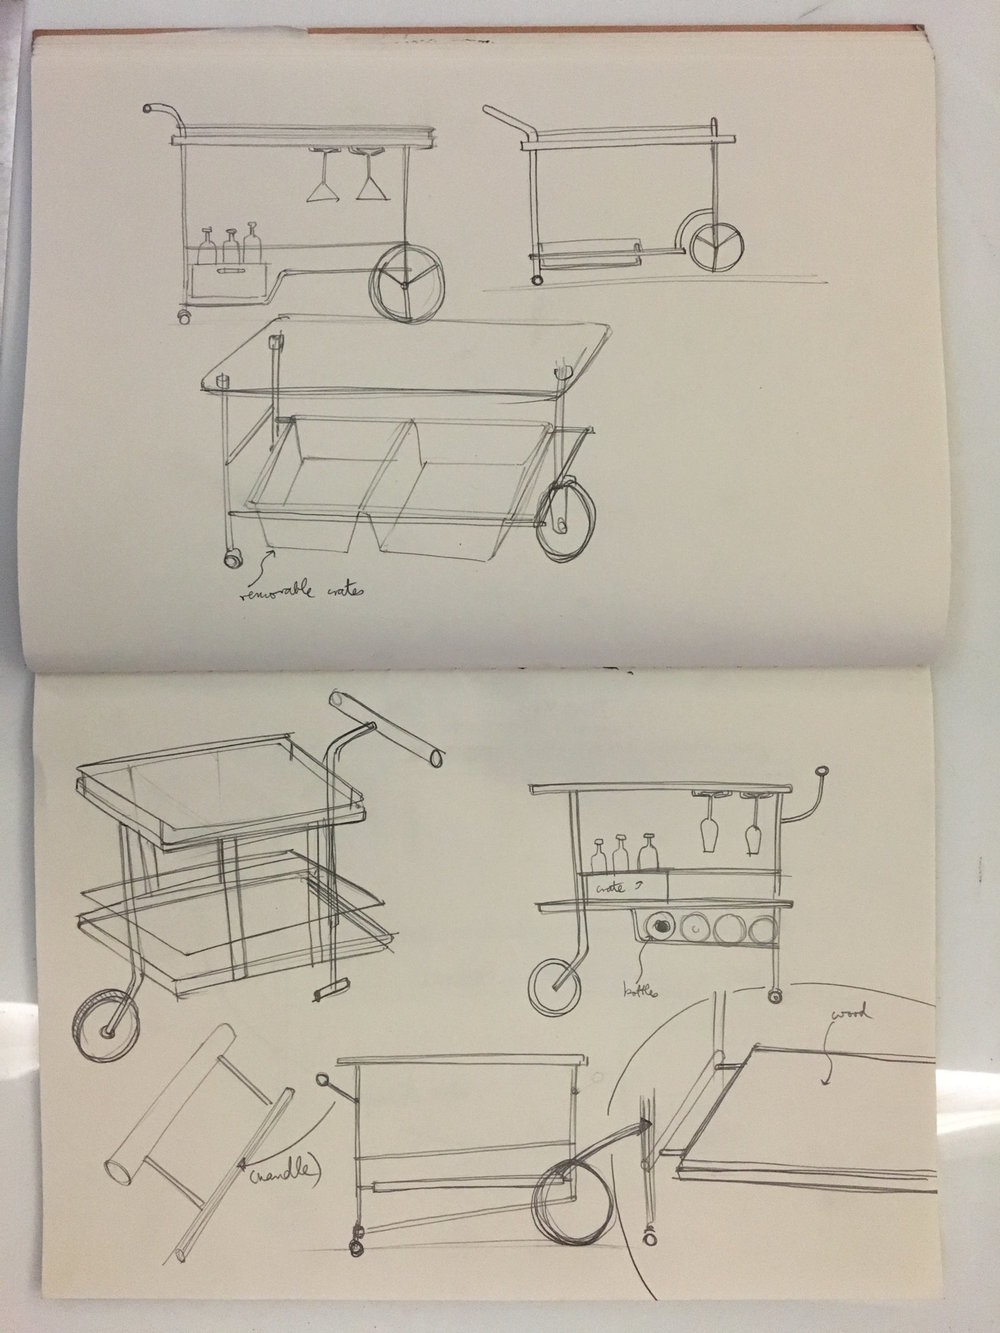 removable crates
crate
bottles
wood
(handle)